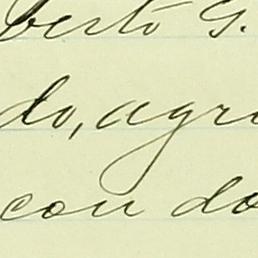 berto G.
do, agri
con do